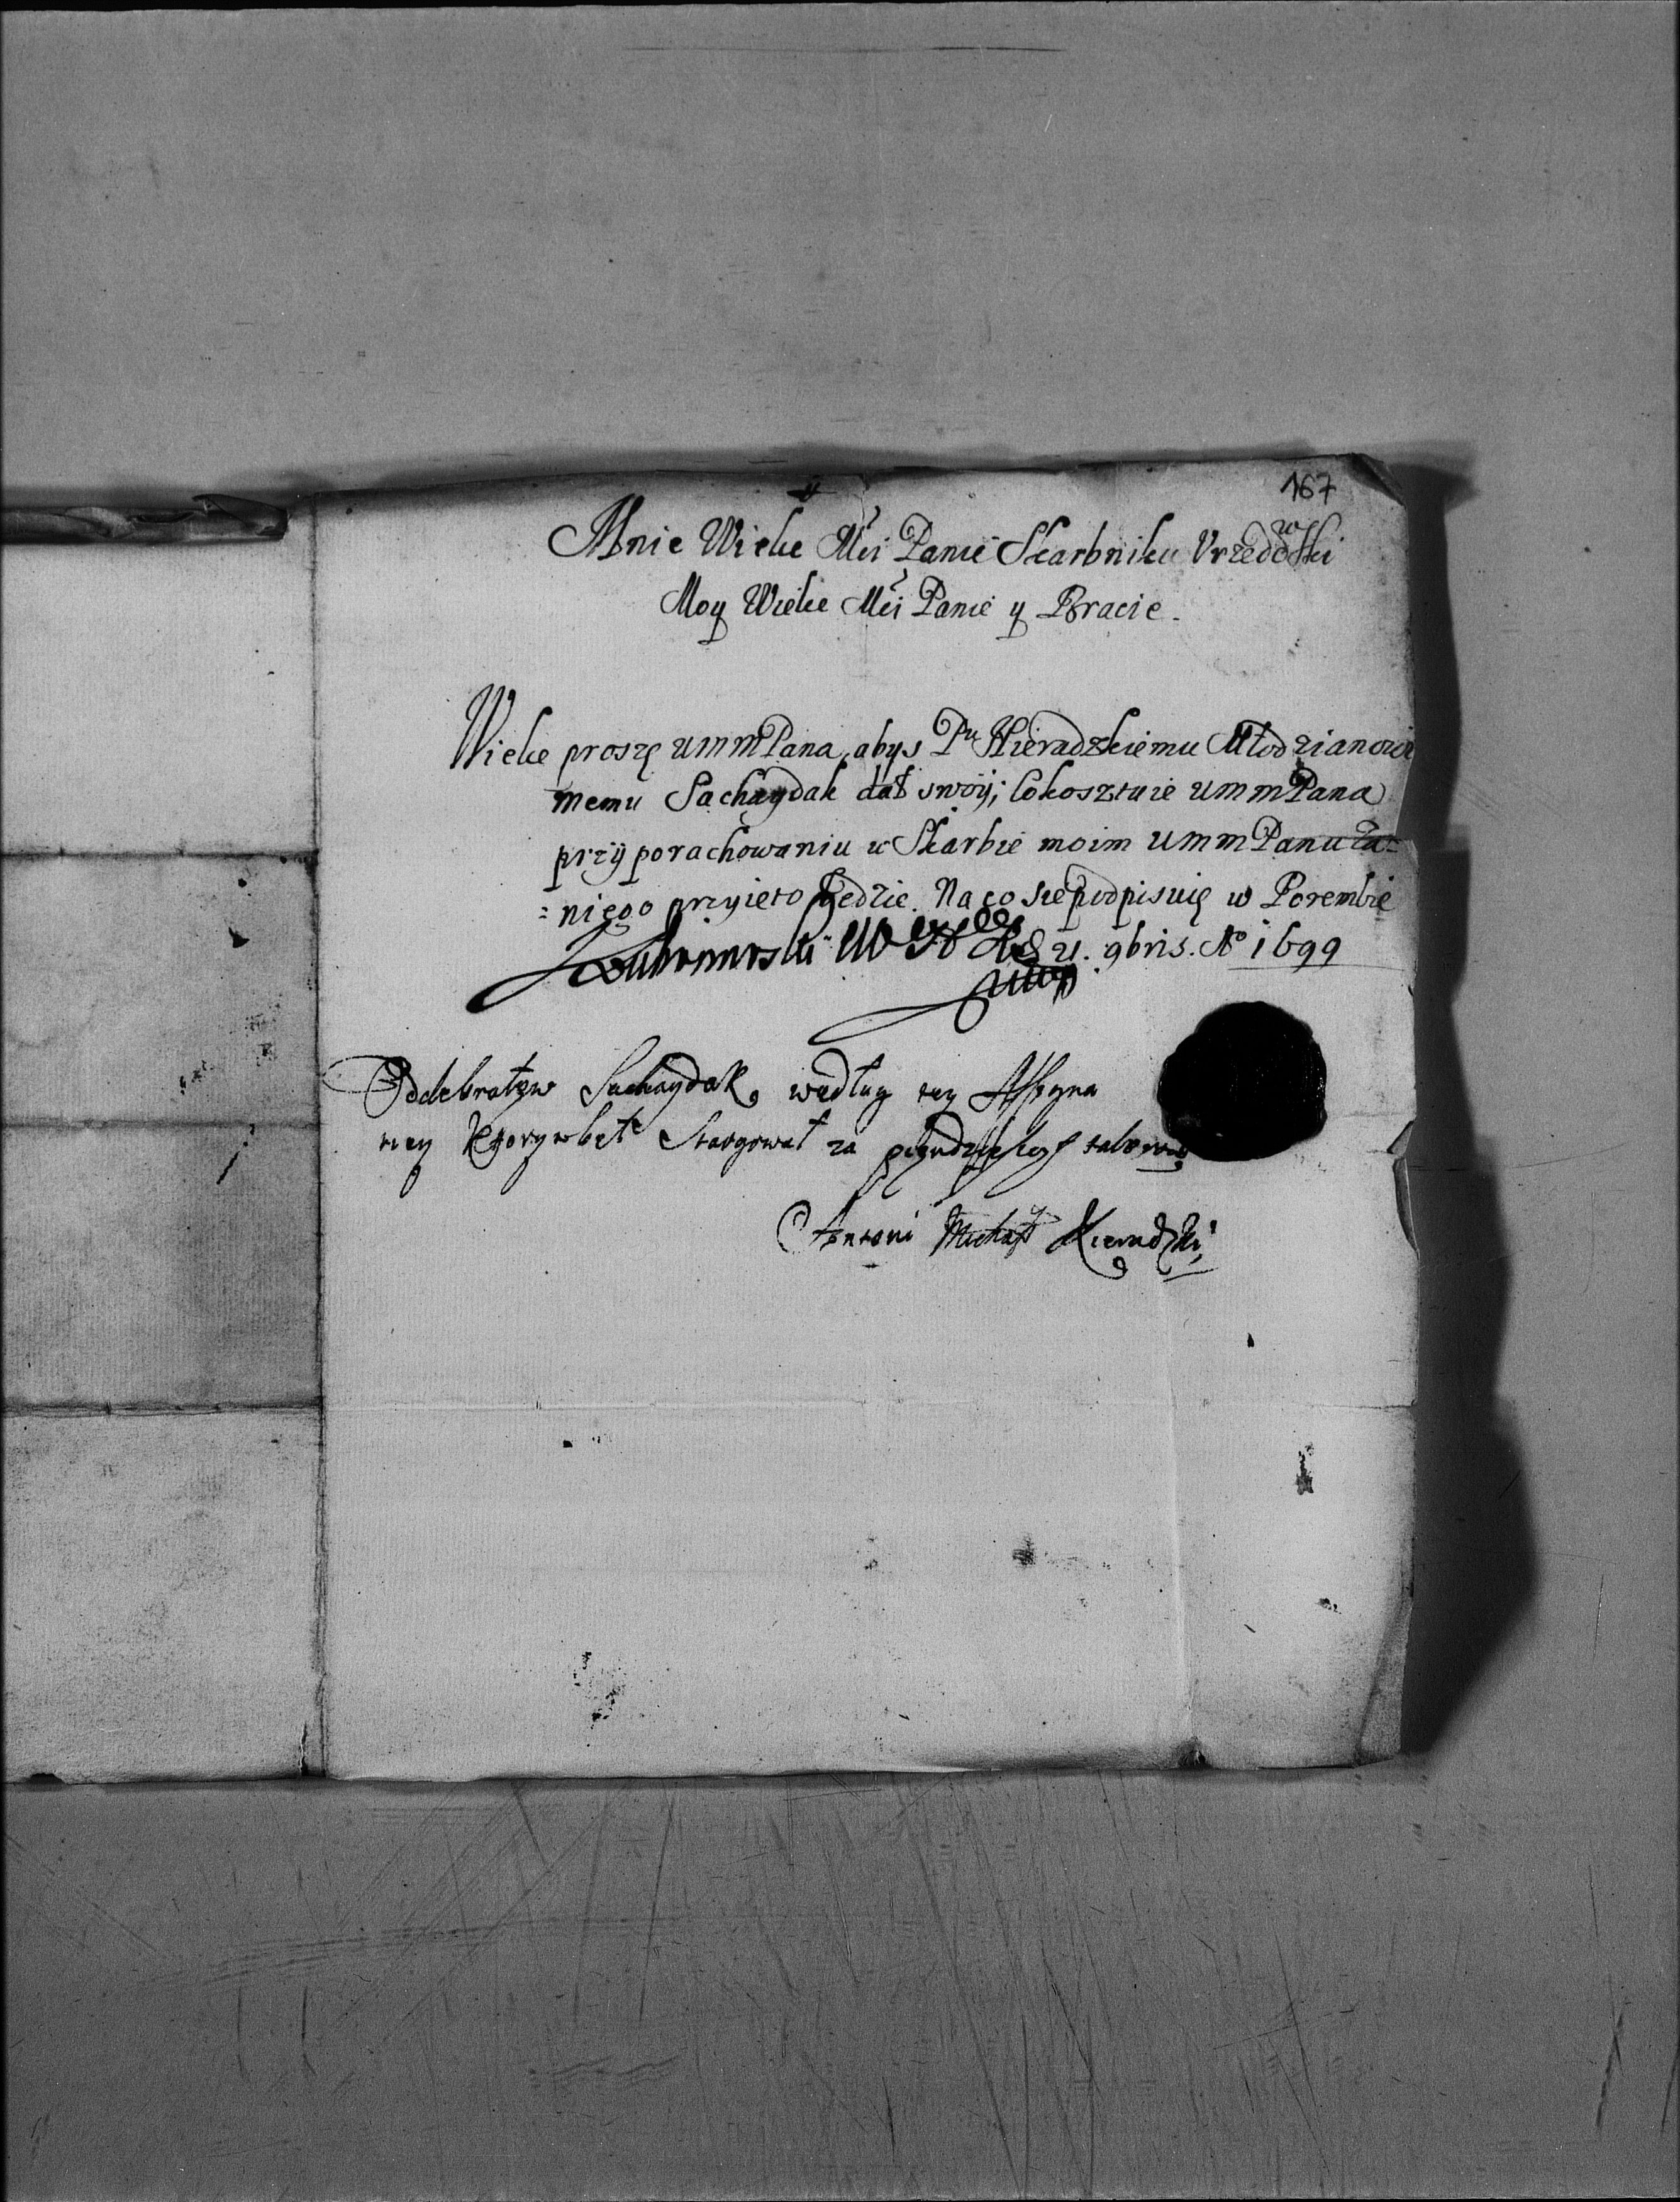 167
Mnie Wielce Mći Panie Skarbniku Vrzedowski
Moy Wielce Mći Panie y Bracie.
Wielce proszę UmmPana, abys Pu Kieradzkiemu Młodzianowi
memu Sachaydak dał swoÿ; Cokosztuie UmmPana
przÿ porachowaniu w Skarbie moim UmmPanu za=
=niego przyieto będzie. Na co sie podpisuię w Porembie
Lubomirski 21. 9bris. Ao 1699
Odebrałem Sachaydak według tey Assygna
tiey Ktory był Stargowat za talerow
Antoni Michał Kieradzki